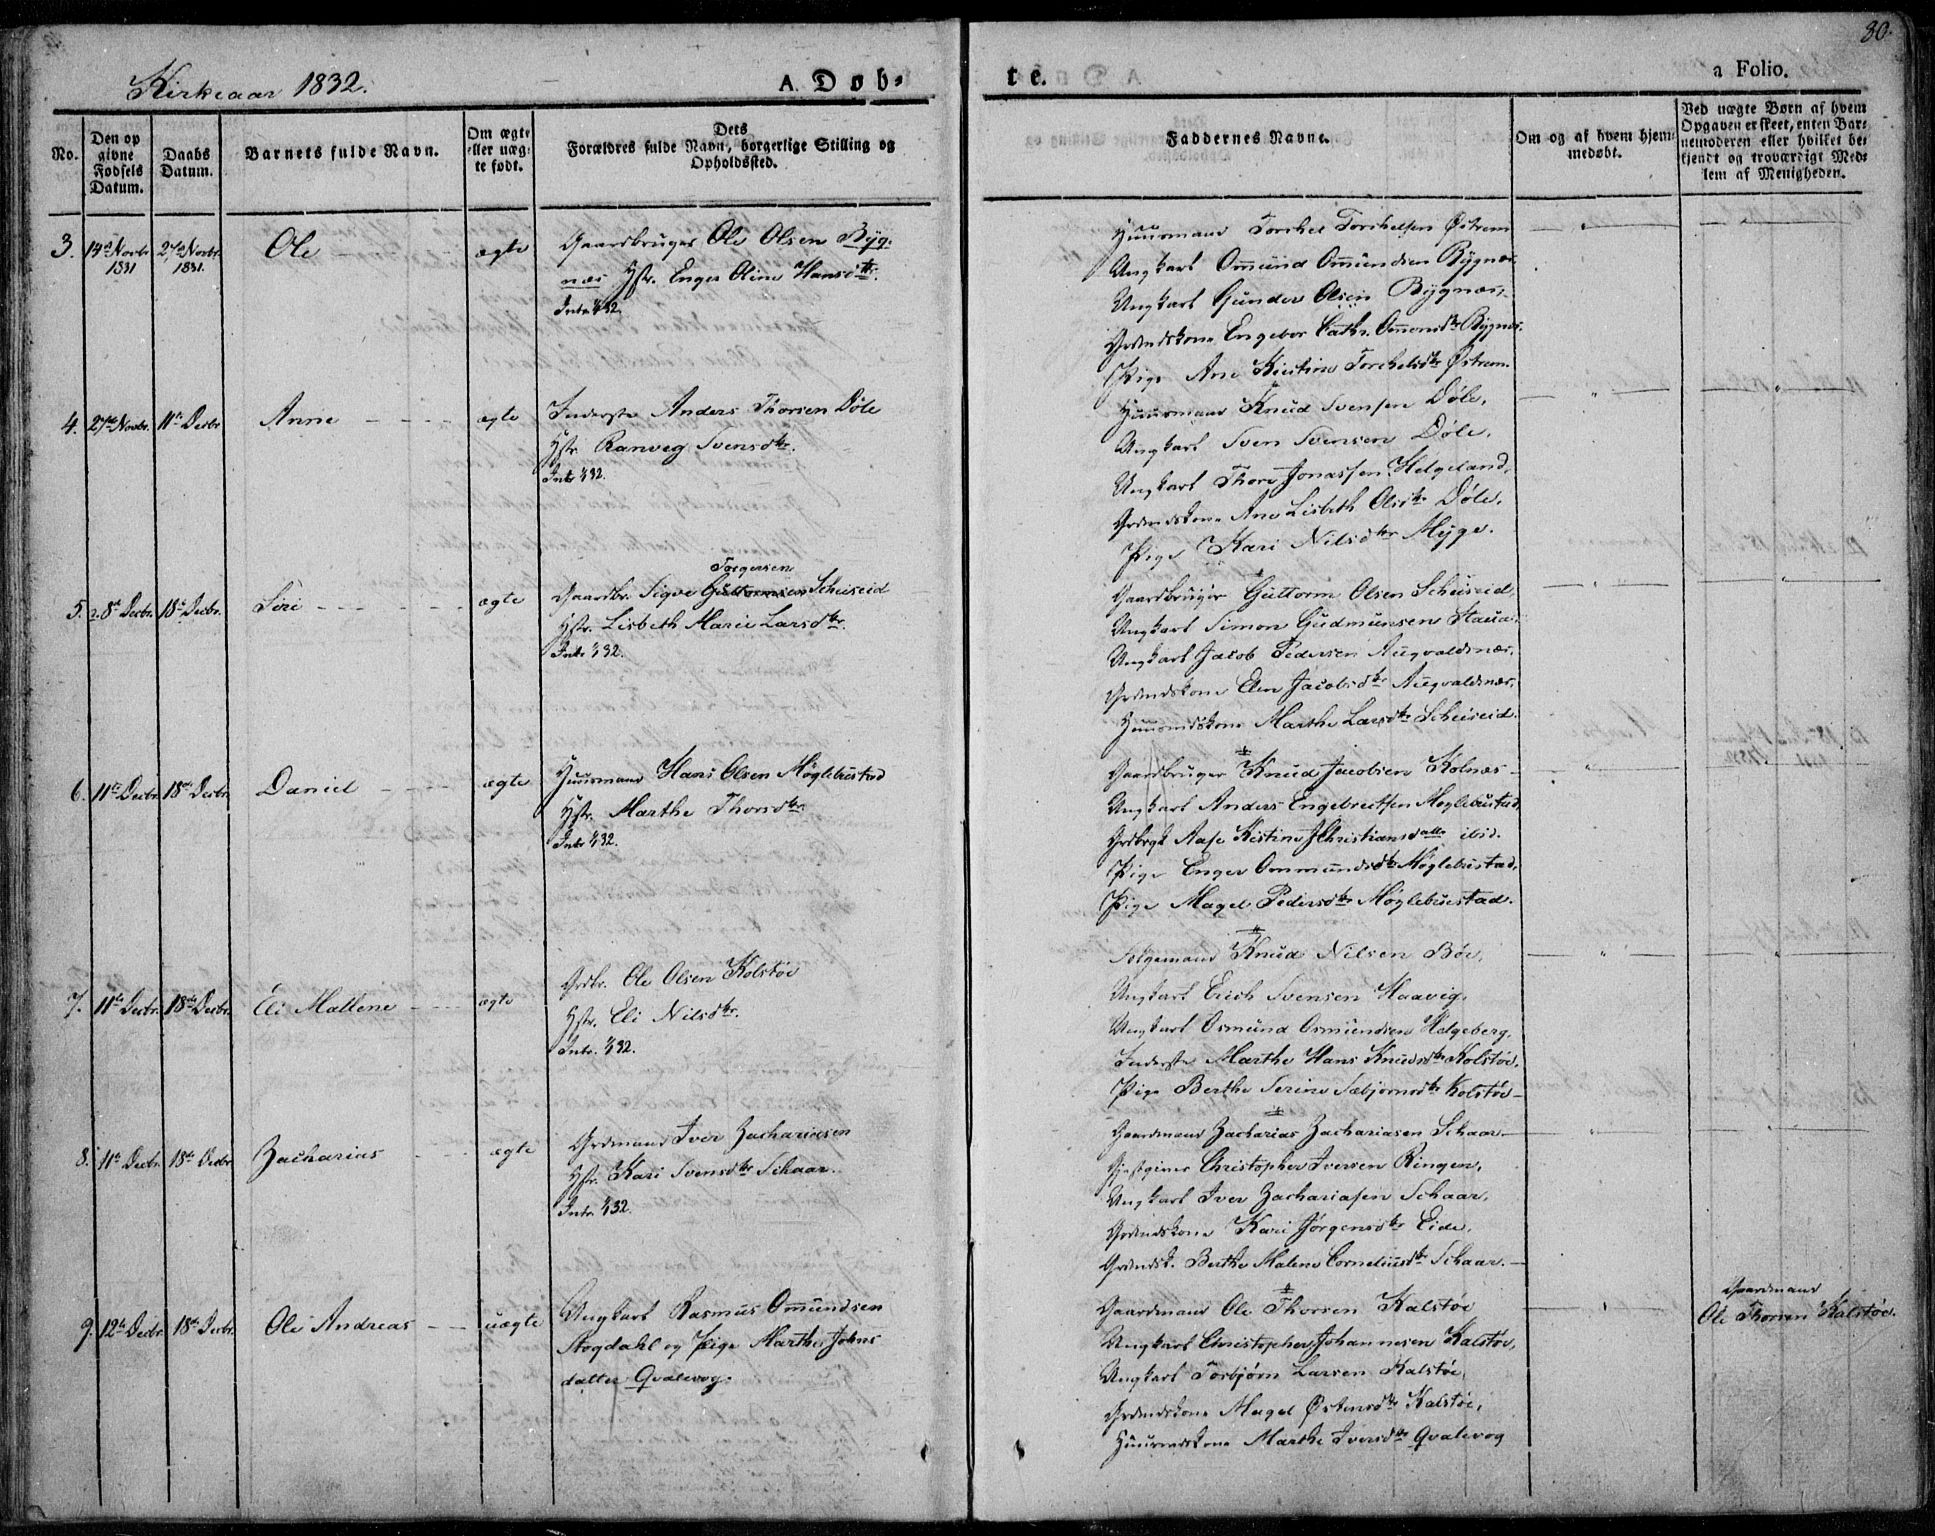 Kirkeaar 1832.
A. Døb-
te.
a Folio.
30.
No.
Den op
givne
Fødsels
Datum.
Daabs
Datum.
Barnets fulde Navn.
Om ægte
eller uæg-
te født.
Dets
Forældres fulde Navn, borgerlige Stilling og
Opholdssted.
Faddernes Navne.
Om og af hvem hjem-
medøbt.
Ved uægte Børn af hvem
Opgaven er skeet, enten Bar-
nemoderen eller hvilket be-
kjendt og troværdigt Med-
lem af Menigheden.
3. 14de Novbr 1831 27de Novbr. 1831. Ole ægte
Gaardbruger Ole Olsen Byg-
næs Hstr. Enger Oline Hansdtr.
Intr. 1/1 32.
Huusmand Torchel Torchelsen Østrem
Ungkarl Omund Omundsen Bygnæs
Ungkarl Gunder Olsen Bygnæs,
Grdmdskone Engebor Cathr. Omonsdtr Bygnæs.
Pige Ane Kistine Torchelsdtr Østrem.
4. 27de Novbr. 11te Decbr Anne - - - - ægte
Inderste Anders Thorsen Døle
Hstr Ranveg Svensdtr.
Intr. 1/1 32.
Huusmand Knud Svensen Døle,
Ungkarl Sven Svensen Døle,
Ungkarl Thore Jonassen Helgeland,
Grdmdskone Ane Lisbeth Olsdtr Døle,
Pige Kari Nilsdtr Myge.
5. 8de Decbr. 18de Decbr. Siri - - - - ægte
Torgersen
Gaardbr. Sigve Guttormsen Scheiseid
Hstr. Lisbeth Marie Larsdtr.
Intr 1/1 32.
Gaardbruger Guttorm Olsen Scheiseid,
Ungkarl Simon Gudmunsen Staua
Ungkarl Jacob Pedersen Augvaldsnæs,
Grdmdskone Elen Jacobsdtr Augvaldsnæs,
Huusmdskone Marthe Larsdtr Scheiseid.
6. 11te Decbr. 18de Decbr. Daniel - - - ægte
Huusmand Hans Olsen Møglebustad
Hstr. Marthe Thorsdtr
Intr 1/1 32.
Gaardbruger Knud Jacobsen Kolnæs -
Ungkarl Anders Engebretsen Møglebustad,
Aase Kistine Christiansdatter ibid.
Pige Enger Ommundsdtr Møglebustad,
Pige Magel Pedersdtr Møglebustad.
7. 11te Decbr. 18de Decbr. Eli Mallene - - - ægte
Grdbr. Ole Olsen Kolstøe
Hstr. Eli Nilsdtr.
Intr. 1/1 32.
Knud Nilsen Bøe,
Ungkarl Erich Svensen Haavig,
Ungkarl Osmund Osmundsen Helgeberg,
Inderste Marthe Hans Knudsdtr Kolstøe,
Pige Berthe Serine Sæbjornsdtr Kolstøe -
8. 11te Decbr. 18de Decbr Zacharias - - - ægte
Grdmand Iver Zachariasen
Hstr. Kari Svensdtr Schaar.
Intr. 1/1 32.
Gaardmand Zacharias Zachariasen Schaar.
Gjestgiver Christopher Iversen Ringen,
Ungkarl Iver Zachariasen Schaar,
Grdmdskone Kari Jørgensdtr Eide,
Grdmdsk. Berthe Malene Corneliusdtr Schaar. -
9. 12te Decbr. 18de Decbr. Ole Andreas - - uægte
Ungkarl Rasmus Omundsen
Stogdahl og Pige Marthe Johns
datter Qvalevog.
Gaardmand Ole Thorsen Kalstøe
Ungkarl Christopher Johannesen Kalstøe,
Ungkarl Torbjørn Larsen Kalstøe,
Grdmdskone Magel Østensdtr Kalstøe,
Huusmdskone Marthe Iversdtr Qvalevog
Gaardmand
Ole Thorsen Kalstøe.